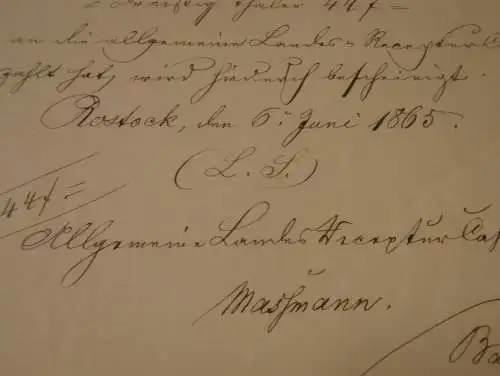 = Dreißig Thaler 44 f =
an die allgemeine Landes-Receptur C
zahlt hat, wird hiedurch bescheinigt.
Rostock, den 6. Juni 1865.
(L. S.)
44 f =
Allgemeine Landes Receptur Cas
Massmann.
Ba